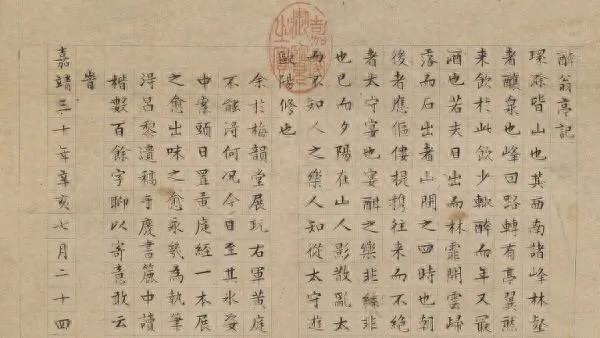 醉翁亭記
環滁皆山也其西南諸峰林壑
者釀泉也峰回路轉有亭翼然
来飲於此飲少輒醉而年又最
酒也若夫日出而林霏開雲歸
落而石出者山間之四時也朝
後者應傴僂提携往来而不絶
者太守宴也宴酣之樂非絲非
也已而夕陽在山人影散亂太
而不知人之樂人知從太守遊
歐陽修也
余於梅韻堂展玩右軍黄庭
不能得何况今日至其水姿
中案頭日置黄庭經一本展
之愈出味之愈永幾為執筆
得昌黎遺稿于廢書簏中讀
楷數百餘字聊以寄意敢云
嘉靖三十年辛亥七月二十四